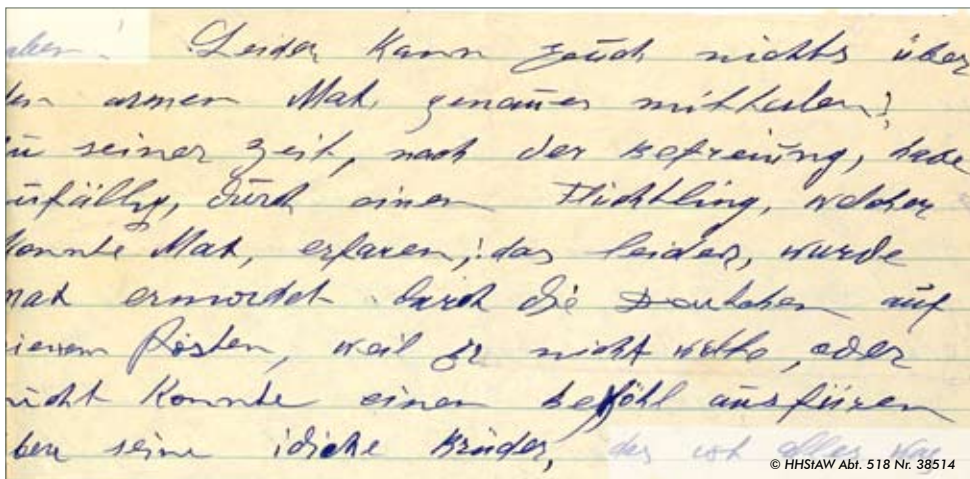 aber! Leider kann Eüch nichts über
den armen Mak, genaües mittailen;
zü seiner Zeit, nach der Befreiüng, habe
züfällig, dürch einen Flüchtling, welcher
konnte Mak, erfaren; das leider, wurde
Mak ermordet durch die Deutschen aüf
seinem Posten, weil er nicht wolte, oder
nicht konnte einen beföhl aüsfüren
über seine idiche Brüder, das ist alles was
© HHStAW Abt. 518 Nr. 38514